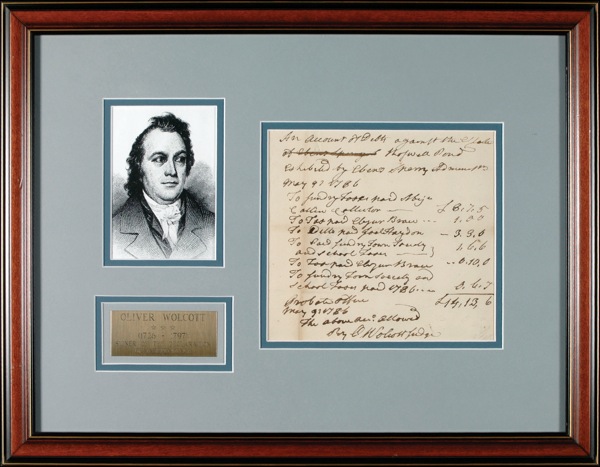 OLIVER WOLCOTT
1726 - 797
An Account of Debts against the Estate
of Roswell Pond
Exhibited by Ebenr Sperry Administr
May 9th 1786
To sundry Taxes paid Abijr
Collector £ 6,,7,,5
To Tax paid Ebenzer Brace - - 1.0.0
To Debt paid Joel Haydon - 3.3.0
To Paid sundry Town Society
and School Taxes } 1,6,6
To Tax paid Ebenzer Brace - - 0.10.0
To sundry Town Society and
School Taxes paid 1786
Probate Office £14,13,6
May 9th 1786
The above acct. allowed
Pr O Wolcott Judge